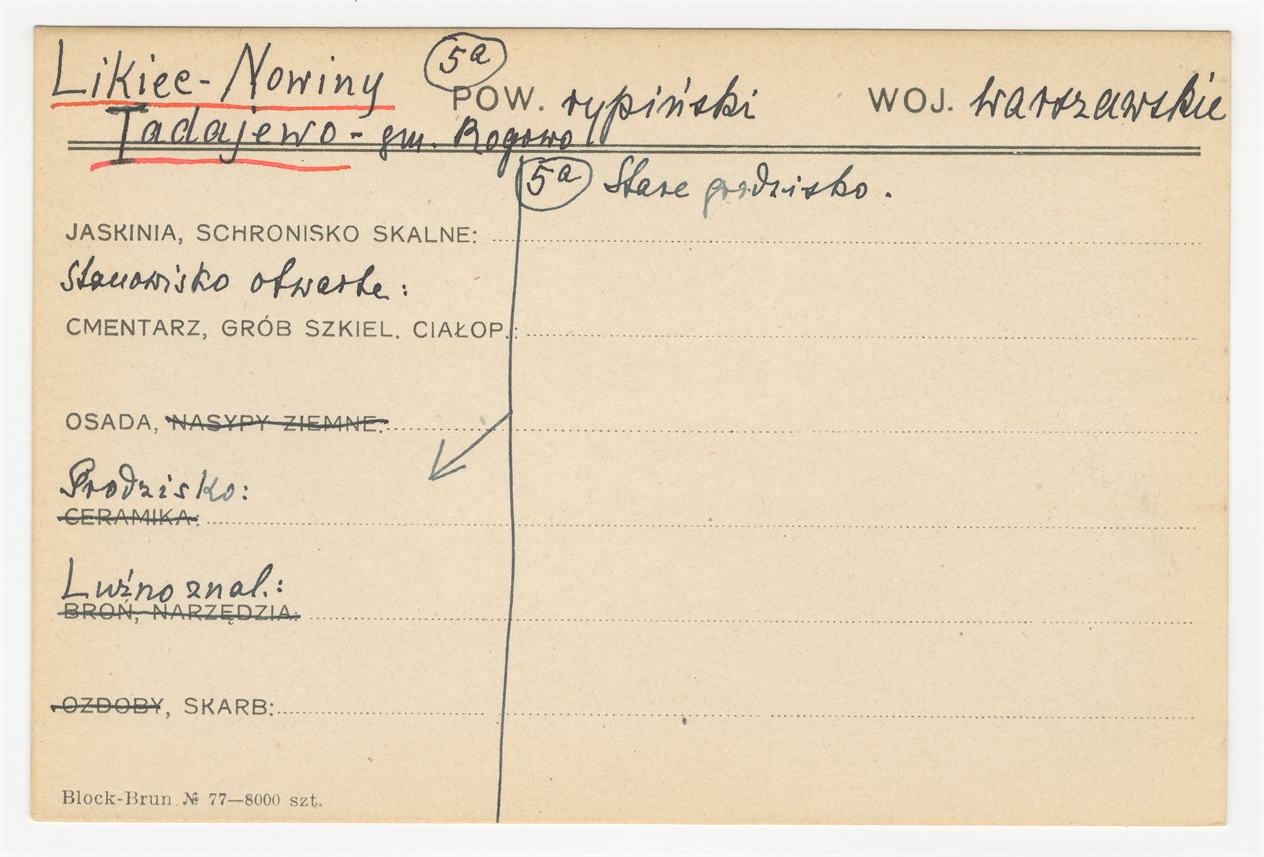 Likiec-Nowiny 5a POW. rypiński WOJ. warszawskie
Tadajewo - gm. Rogowo
5a Stare grodzisko.
JASKINIA, SCHRONISKO SKALNE:
Stanowisko otwarte:
CMENTARZ, GRÓB SZKIEL. CIAŁOP.:
OSADA, NASYPY ZIEMNE:
Grodzisko:
CERAMIKA:
Luźno znal.:
BROŃ, NARZĘDZIA:
OZDOBY, SKARB:
Block-Brun № 77—8000 szt.